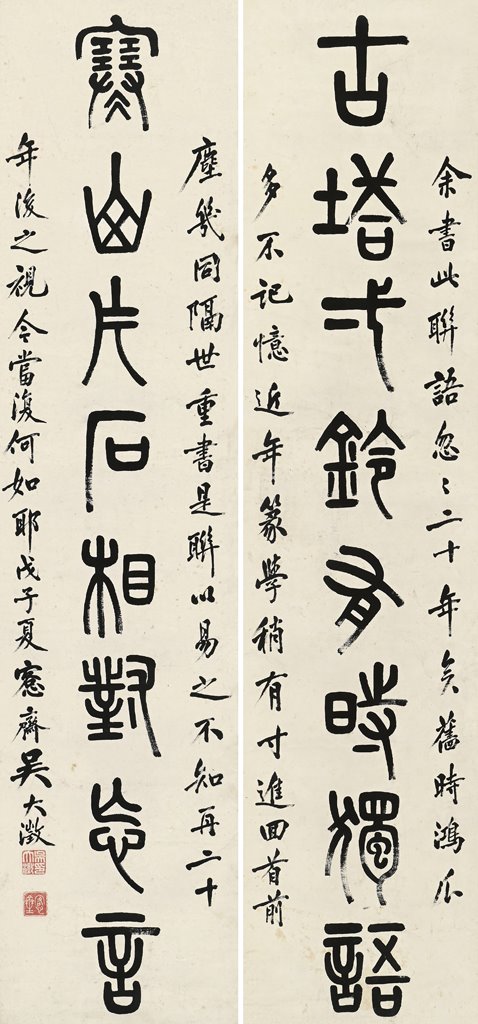 古塔弌鈴有時獨語
寒山片石相對忘言
余書此聯語忽〻二十年矣舊時鴻爪
多不記憶近年篆學稍有寸進回首前
塵幾同隔世重書是聯以易之不知再二十
年後之視今當復何如耶戊子夏愙齋吳大澂